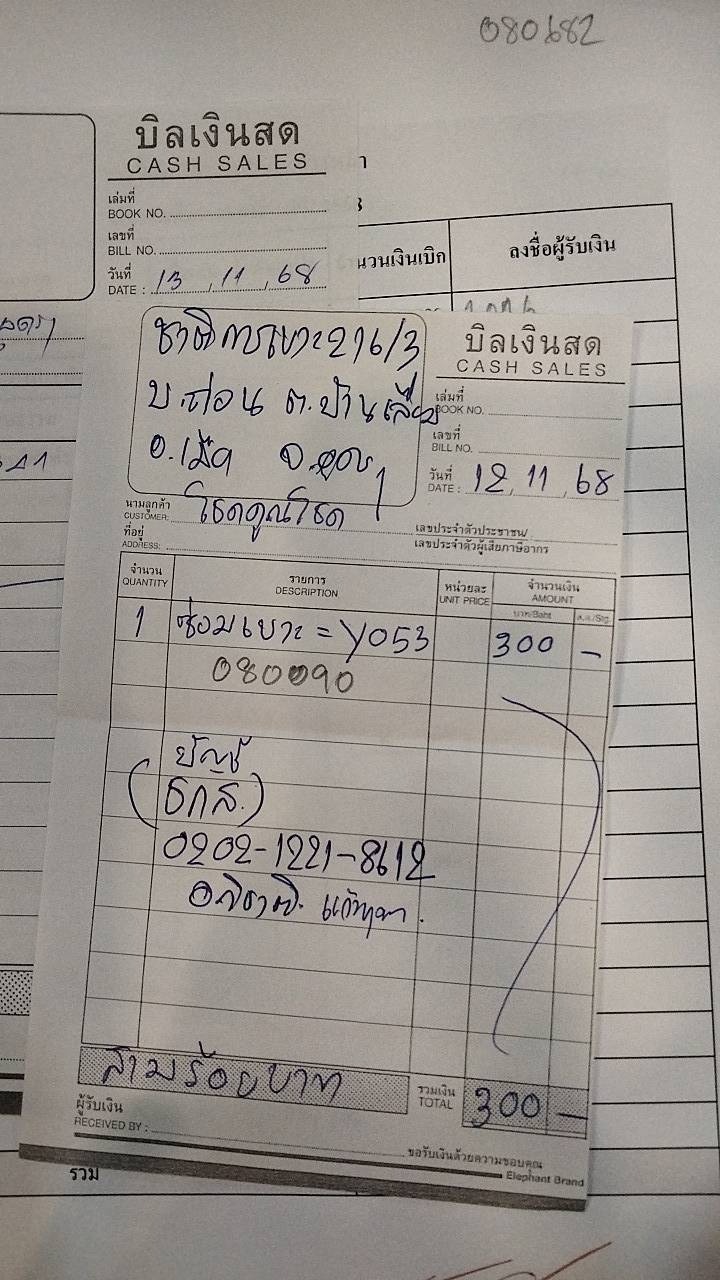 080682
บิลเงินสด
CASH SALES
เล่มที่
BOOK NO.
เลขที่
BILL NO.
วันที่
DATE : 13, 11, 68
นวนเงินเบิก
ลงชื่อผู้รับเงิน
ชาติการเบาะ 216/3
ต.บ้านเลื่อม
อ.เมือ
บิลเงินสด
CASH SALES
เล่มที่
BOOK NO.
เลขที่
BILL NO.
วันที่
DATE : 12, 11, 68
นามลูกค้า
CUSTOMER: โชคคูณโชค
ที่อยู่
ADDRESS:
เลขประจำตัวประชาชน/
เลขประจำตัวผู้เสียภาษีอากร
จำนวน
QUANTITY
รายการ
DESCRIPTION
หน่วยละ
UNIT PRICE
จำนวนเงิน
AMOUNT
บาท/Baht
ส.ต./Stg.
1 ซ่อมเบาะ = Y053 300 –
080090
บัญชี
(ธกส.)
0202-1221-8612
สามร้อยบาท
รวมเงิน
TOTAL
300 –
ผู้รับเงิน
RECEIVED BY :
ขอรับเงินด้วยความขอบคุณ
Elephant Brand
รวม